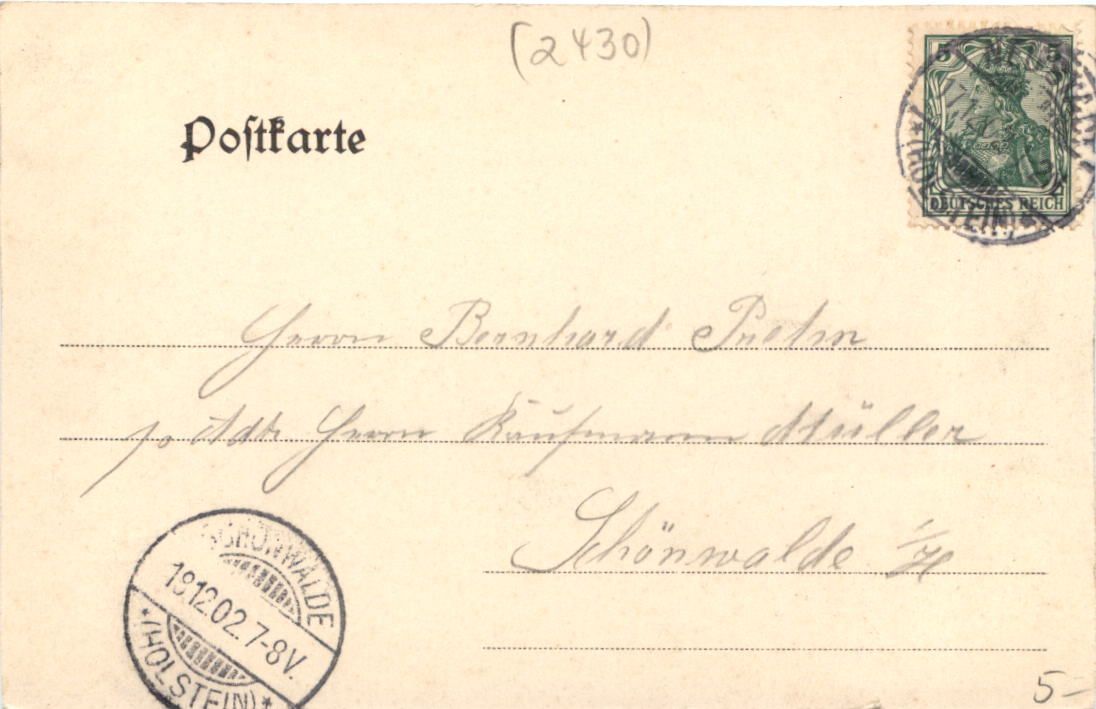 (2430)
Postkarte
5 5
NEUSTADT
(HOLSTEIN)
DEUTSCHES REICH
Herrn Bernhard
p Adr Herrn Kaufmann Müller
Schönwalde i/H
SCHÖNWALDE
18.12.02.7-8V.
*(HOLSTEIN)*
5-